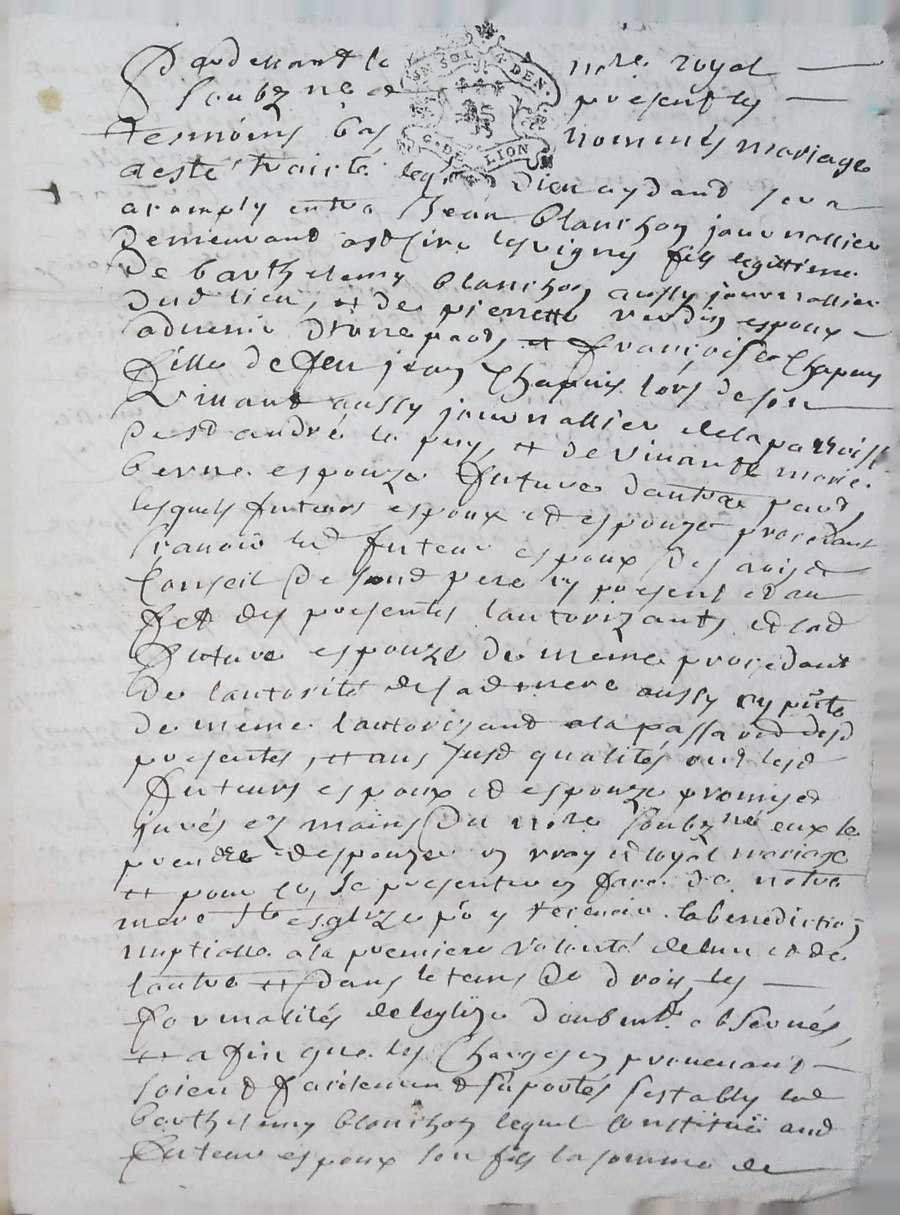 Pardevant le nore royal
soubzné & presents
tesmoins bas nommés mariage
a esté traité leql. Dieu aydand sera
acomply entre Jean Blanchon journallier
UN SOL 4 DEN.
G. DE LION
Demeurand fils legittime
De barthelemy blanchon aussy journallier
dud lieu, et de pierrette verdin espoux
advenir d'une part, et françoise Chapuy
fille de feu jean Chapuis lors de son
Vivant aussy journallier de la paroisse
De st andré le puy, et de vivante marie
berne espouze future d'autre part,
lesquels futeurs espoux et espouze procedant
scavoir led futeur espoux des avis et
Conseil de sond pere icy present et au
fet des presentes l'autorizant, et lad
future espouze de meme procedant
De l'autorité de sad mere aussy icy pnte
de même l'autorisand a la passa desd
presentes, et aus susd qualités ont lesd
futeurs espoux et espouze promis et
jurés ez mains du nore soubzné eux se
prendre et espouzer en vray et loyal mariage
et pour ce, se presenter en face de notre
mere ste esglize po y recevoir la benediction
nuptialle a la premiere volonté de lun et de
lautre et dans le tems de droit, les
formalités de leglize d observés,
et afin que les Charges en provenant
soient facilement suportés s'establit led
barthelemy blanchon lequel constitue aud
futeur espoux son fils la somme de